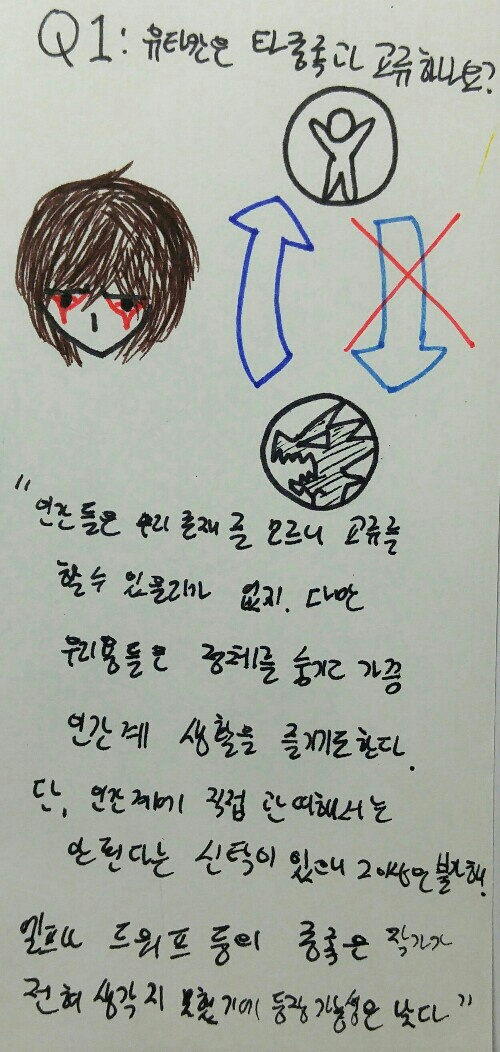 Q1: 유타칸은 타종족과 교류하나요?
"인간들은 우리 존재를 모르니 교류를
할 수 있을리가 없지. 다만
우리 용들은 정체를 숨기고 가끔
인간계 생활을 즐기기도한다.
단, 인간계에 직접 관여해서는
안된다는 신탁이 있으니 그 이상은 불가해.
엘프나 드워프 등의 종족은 작가가
전혀 생각지 못했기에 등장가능성은 낮다"